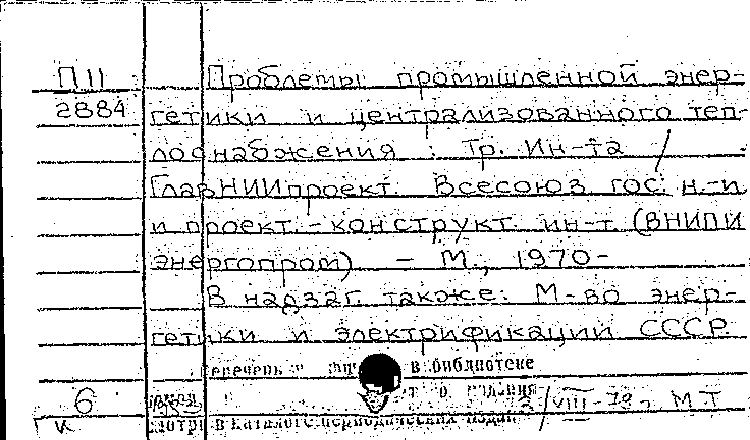 П11
2884
Проблемы промышленной энер-
гетики и централизованного теп-
лоснабжения : Тр. Ин-та /
ГлавНИИпроект. Всесоюз. гос. н.-и.
и проект.-конструкт. ин-т (ВНИПИ
энергопром) – М., 1970-
В надзаг. также: М-во энер-
гетики и электрификации СССР.
в библиотеке
6
VIII-78 г. М Т
смотри в каталоге периодических издан